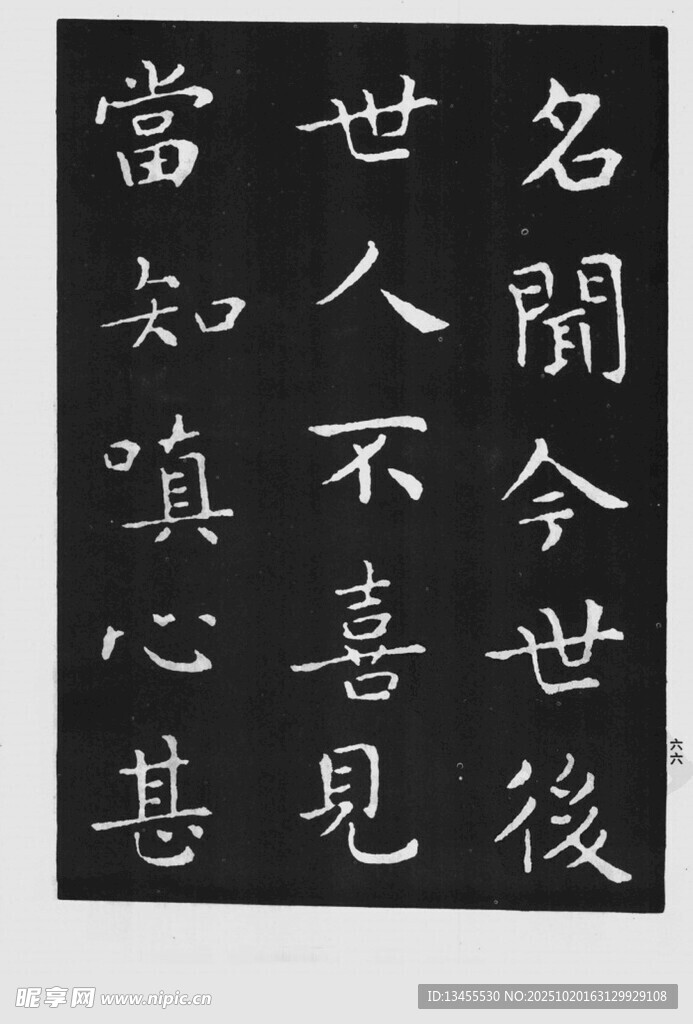 名聞今世後
世人不喜見
當知嗔心甚
六六
昵享网 www.nipic.cn
ID:13455530 NO:20251020163129929108